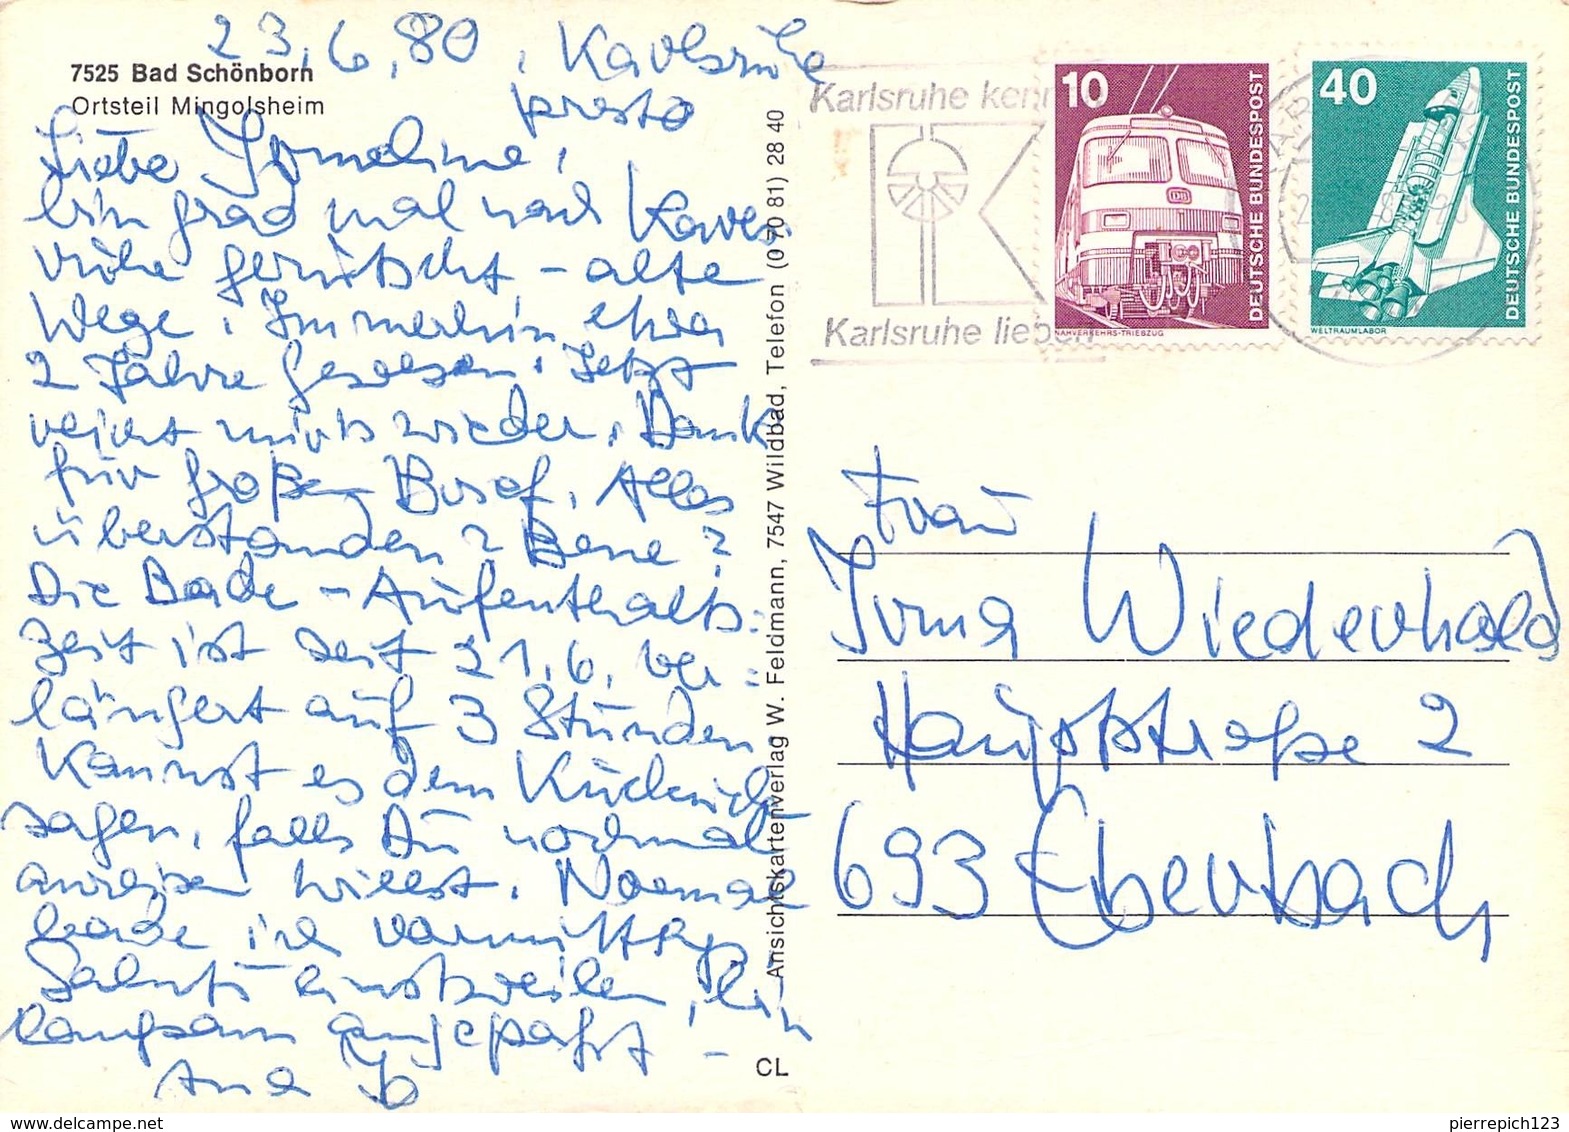 23.6.80, Karlsruhe
presto
7525 Bad Schönborn
Ortsteil Mingolsheim
Liebe
bin grad mal nach Karls-
ruhe gerutscht - alte
Wege. Immerhin etwa
2 Jahre gewesen. Jetzt
reicht mirs wieder. Dank
für großen Brief. Alles
überstanden? Bene?
Die Bade-Aufenthalts-
zeit ist seit 21.6. ver-
längert auf 3 Stunden
Kannst es dem
sagen, falls Du nochmal
anreisen willst. Normal
bade ich vormittags.
Salut einstweilen, bin
langsam angepaßt -
Ansichtskartenverlag W. Feldmann, 7547 Wildbad, Telefon (0 70 81) 28 40
CL
Karlsruhe kennen
K
Karlsruhe lieben
10
DEUTSCHE BUNDESPOST
NAHVERKEHRS-TRIEBZUG
40
DEUTSCHE BUNDESPOST
WELTRAUMLABOR
Frau
Irma Wiederhold
Hauptstraße 2
693 Eberbach
www.delcampe.net
pierrepich123